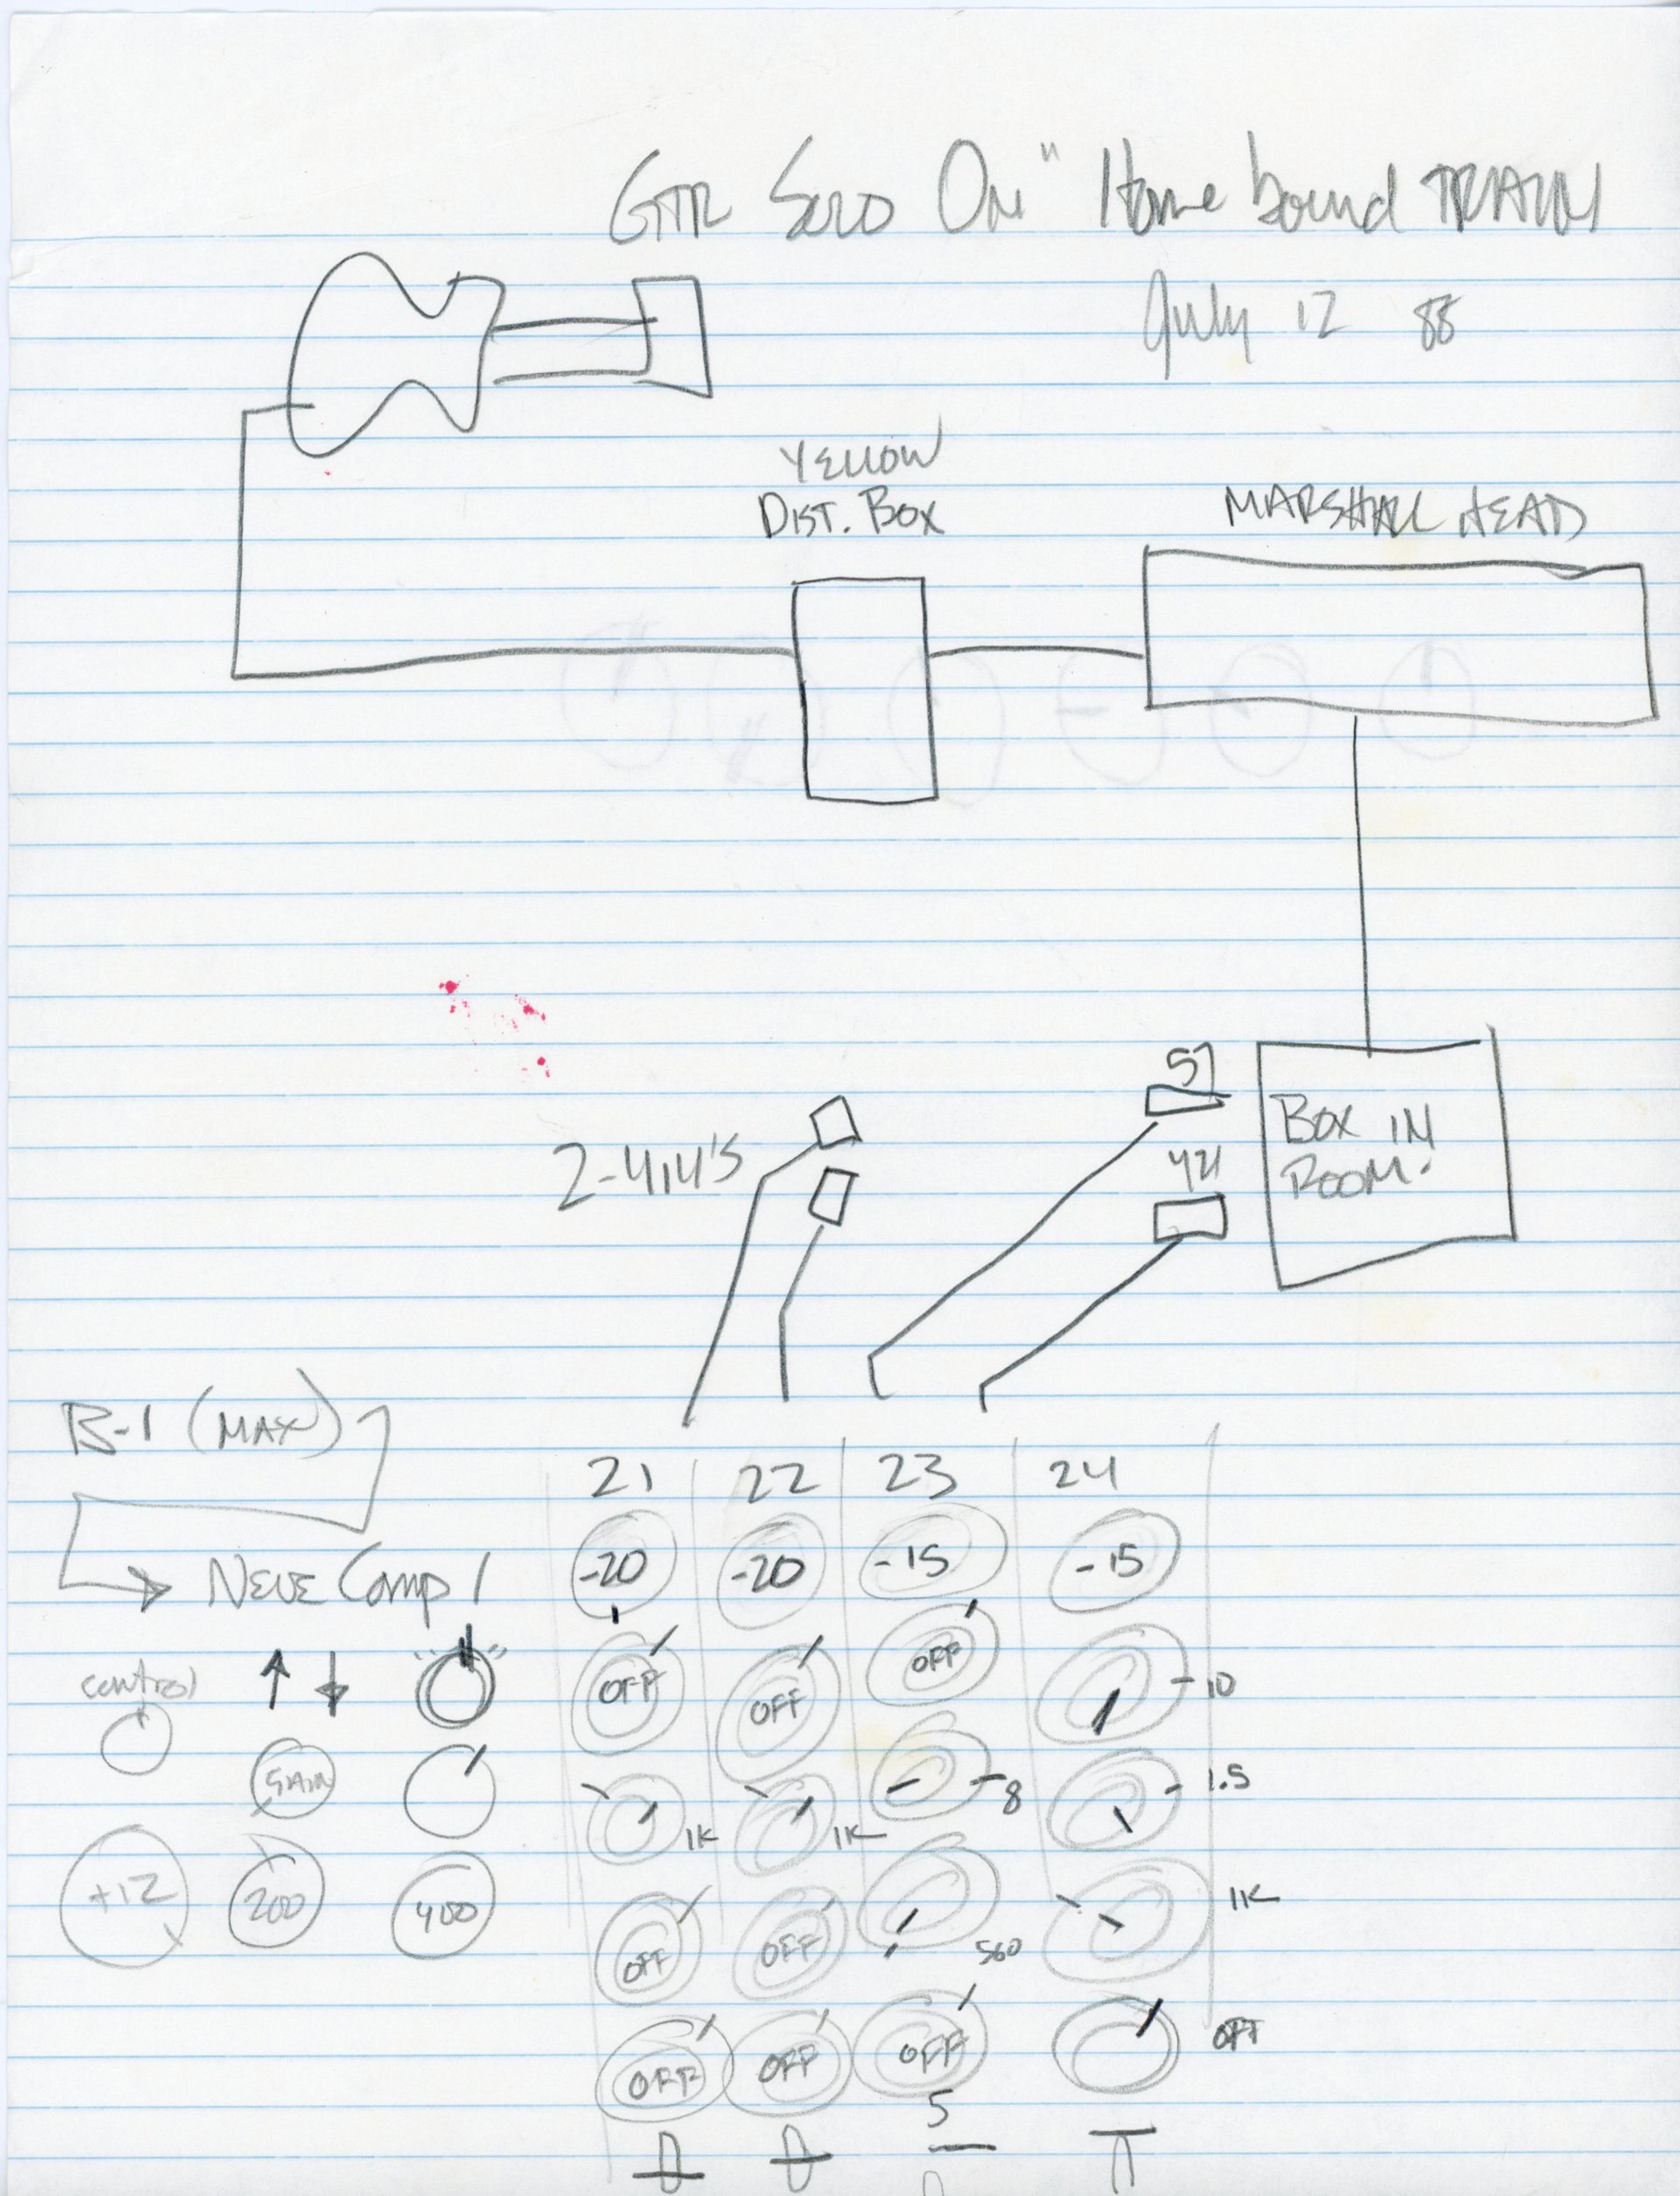 GTR SOLO ON "Homebound TRAIN
July 12 88
YELLOW
DIST. BOX
MARSHALL HEAD
57
421
BOX IN
ROOM.
2-414'S
B-1 (MAX)
NEVE Comp 1
control
+12
200
400
21 22 23 24
-20 -20 -15 -15
OFF OFF OFF 10
1K 1K 8 1.5
OFF OFF 560 1K
OFF OFF OFF OFF
5